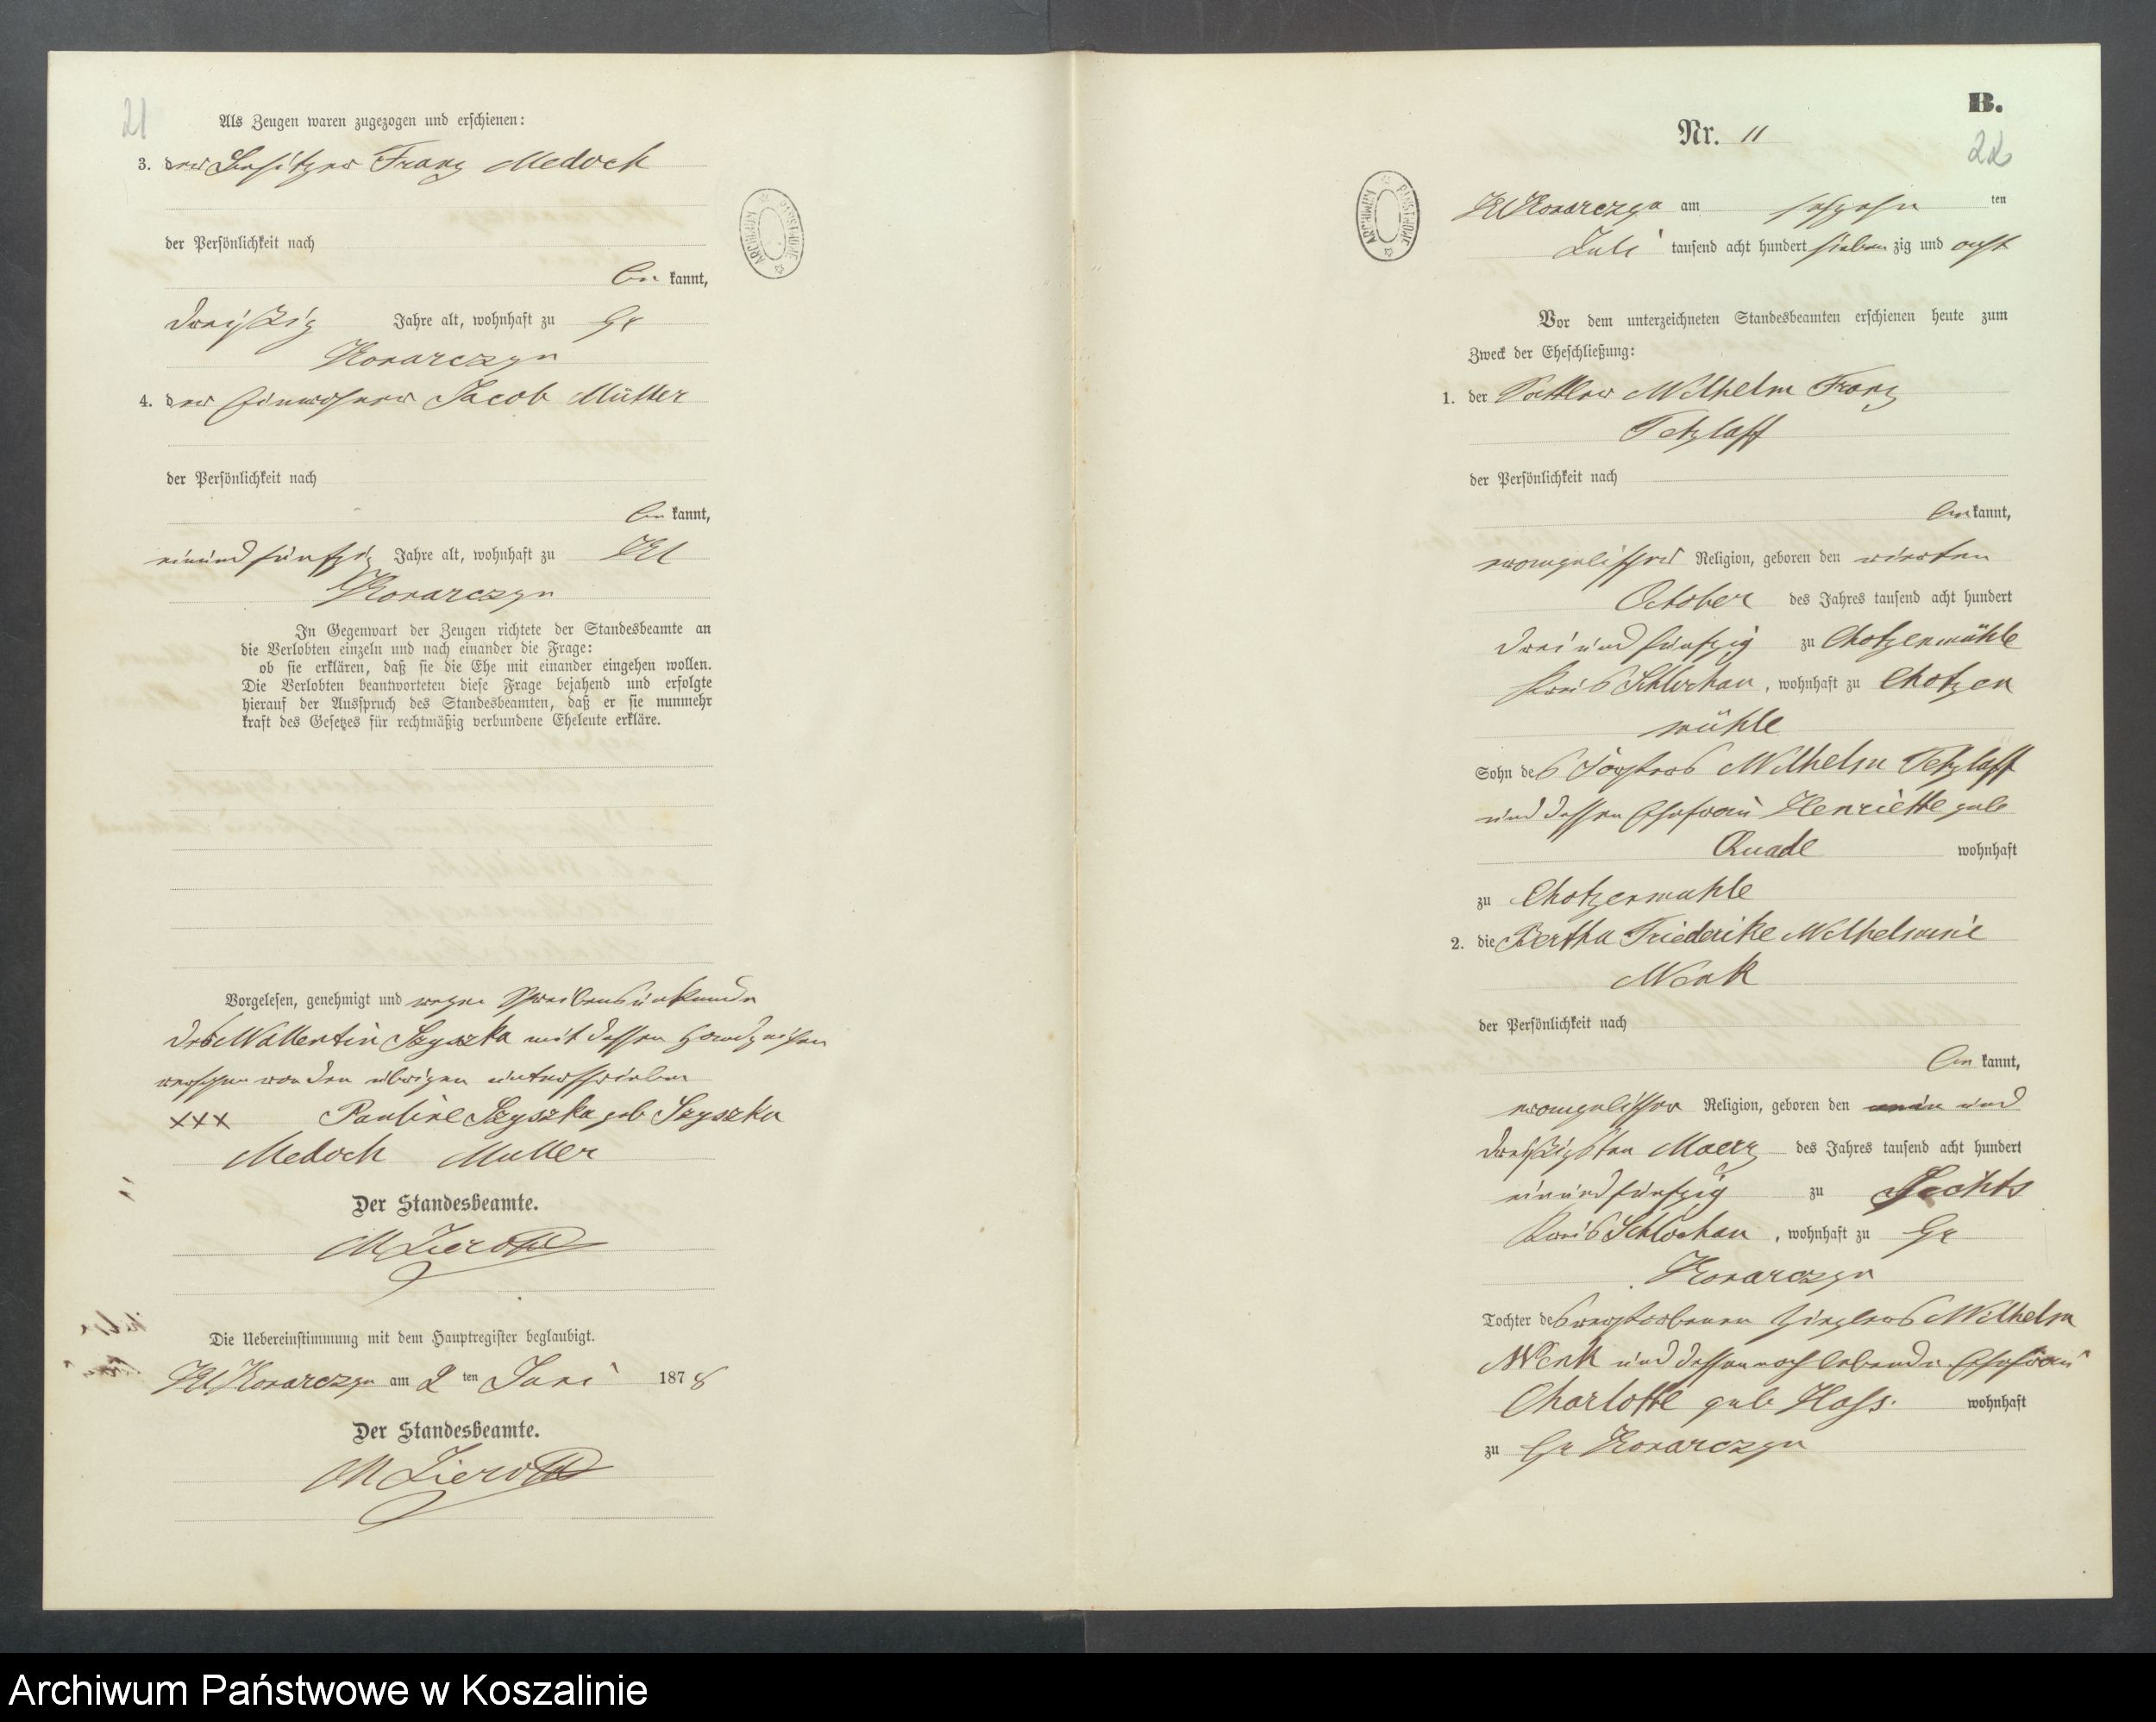 21
Als Zeugen waren zugezogen und erschienen:
3. der Besitzer Franz Medoch
der Persönlichkeit nach
be kannt,
dreißig Jahre alt, wohnhaft zu Gr
Konarczyn
4. der Einwohner Jacob Müller
der Persönlichkeit nach
be kannt,
einundfünfzig Jahre alt, wohnhaft zu Kl
Konarczyn
In Gegenwart der Zeugen richtete der Standesbeamte an
die Verlobten einzeln und nach einander die Frage:
ob sie erklären, daß sie die Ehe mit einander eingehen wollen.
Die Verlobten beantworteten diese Frage bejahend und erfolgte
hierauf der Ausspruch des Standesbeamten, daß er sie nunmehr
kraft des Gesetzes für rechtmäßig verbundene Eheleute erkläre.
Vorgelesen, genehmigt und wegen Schreibensunkunde
des Wallentin Szyszka mit dessen Handzeichen
versehen von den übrigen unterschrieben
xxx Pauline Szyszka geb Szyszka
Medoch Muller
Der Standesbeamte.
Die Uebereinstimmung mit dem Hauptregister beglaubigt.
Kl Konarczyn am 2 ten Juni 187 8
Der Standesbeamte.
ARCHIWUM PAŃSTWOWE
B.
Nr. 11
22
ARCHIWUM PAŃSTWOWE
Kl Konarczyn am sechzehn ten
Juli tausend acht hundert sieben zig und acht
Vor dem unterzeichneten Standesbeamten erschienen heute zum
Zweck der Eheschließung:
1. der Sattler Wilhelm Franz
Tetzlaff
der Persönlichkeit nach
be kannt,
evangelischer Religion, geboren den vierten
October des Jahres tausend acht hundert
drei und fünfzig zu Chotzenmühle
Kreis Schlochau, wohnhaft zu Chotzen
mühle
Sohn des Försters Wilhelm Tetzlaff
und dessen Ehefrau Henriette geb
Quade wohnhaft
zu Chotzenmühle
2. die Bertha Friederike Wilhelmine
Wenk
der Persönlichkeit nach
be kannt,
evangelischer Religion, geboren den ein und
dreißigsten Maerz des Jahres tausend acht hundert
einundfünfzig zu Sechts
Kreis Schlochau, wohnhaft zu Gr
Konarczyn
Tochter des verstorbenen Zieglers Wilhelm
Wenk und dessen noch lebende Ehefrau
Charlotte geb Hass. wohnhaft
zu Gr Konarczyn
Archiwum Państwowe w Koszalinie